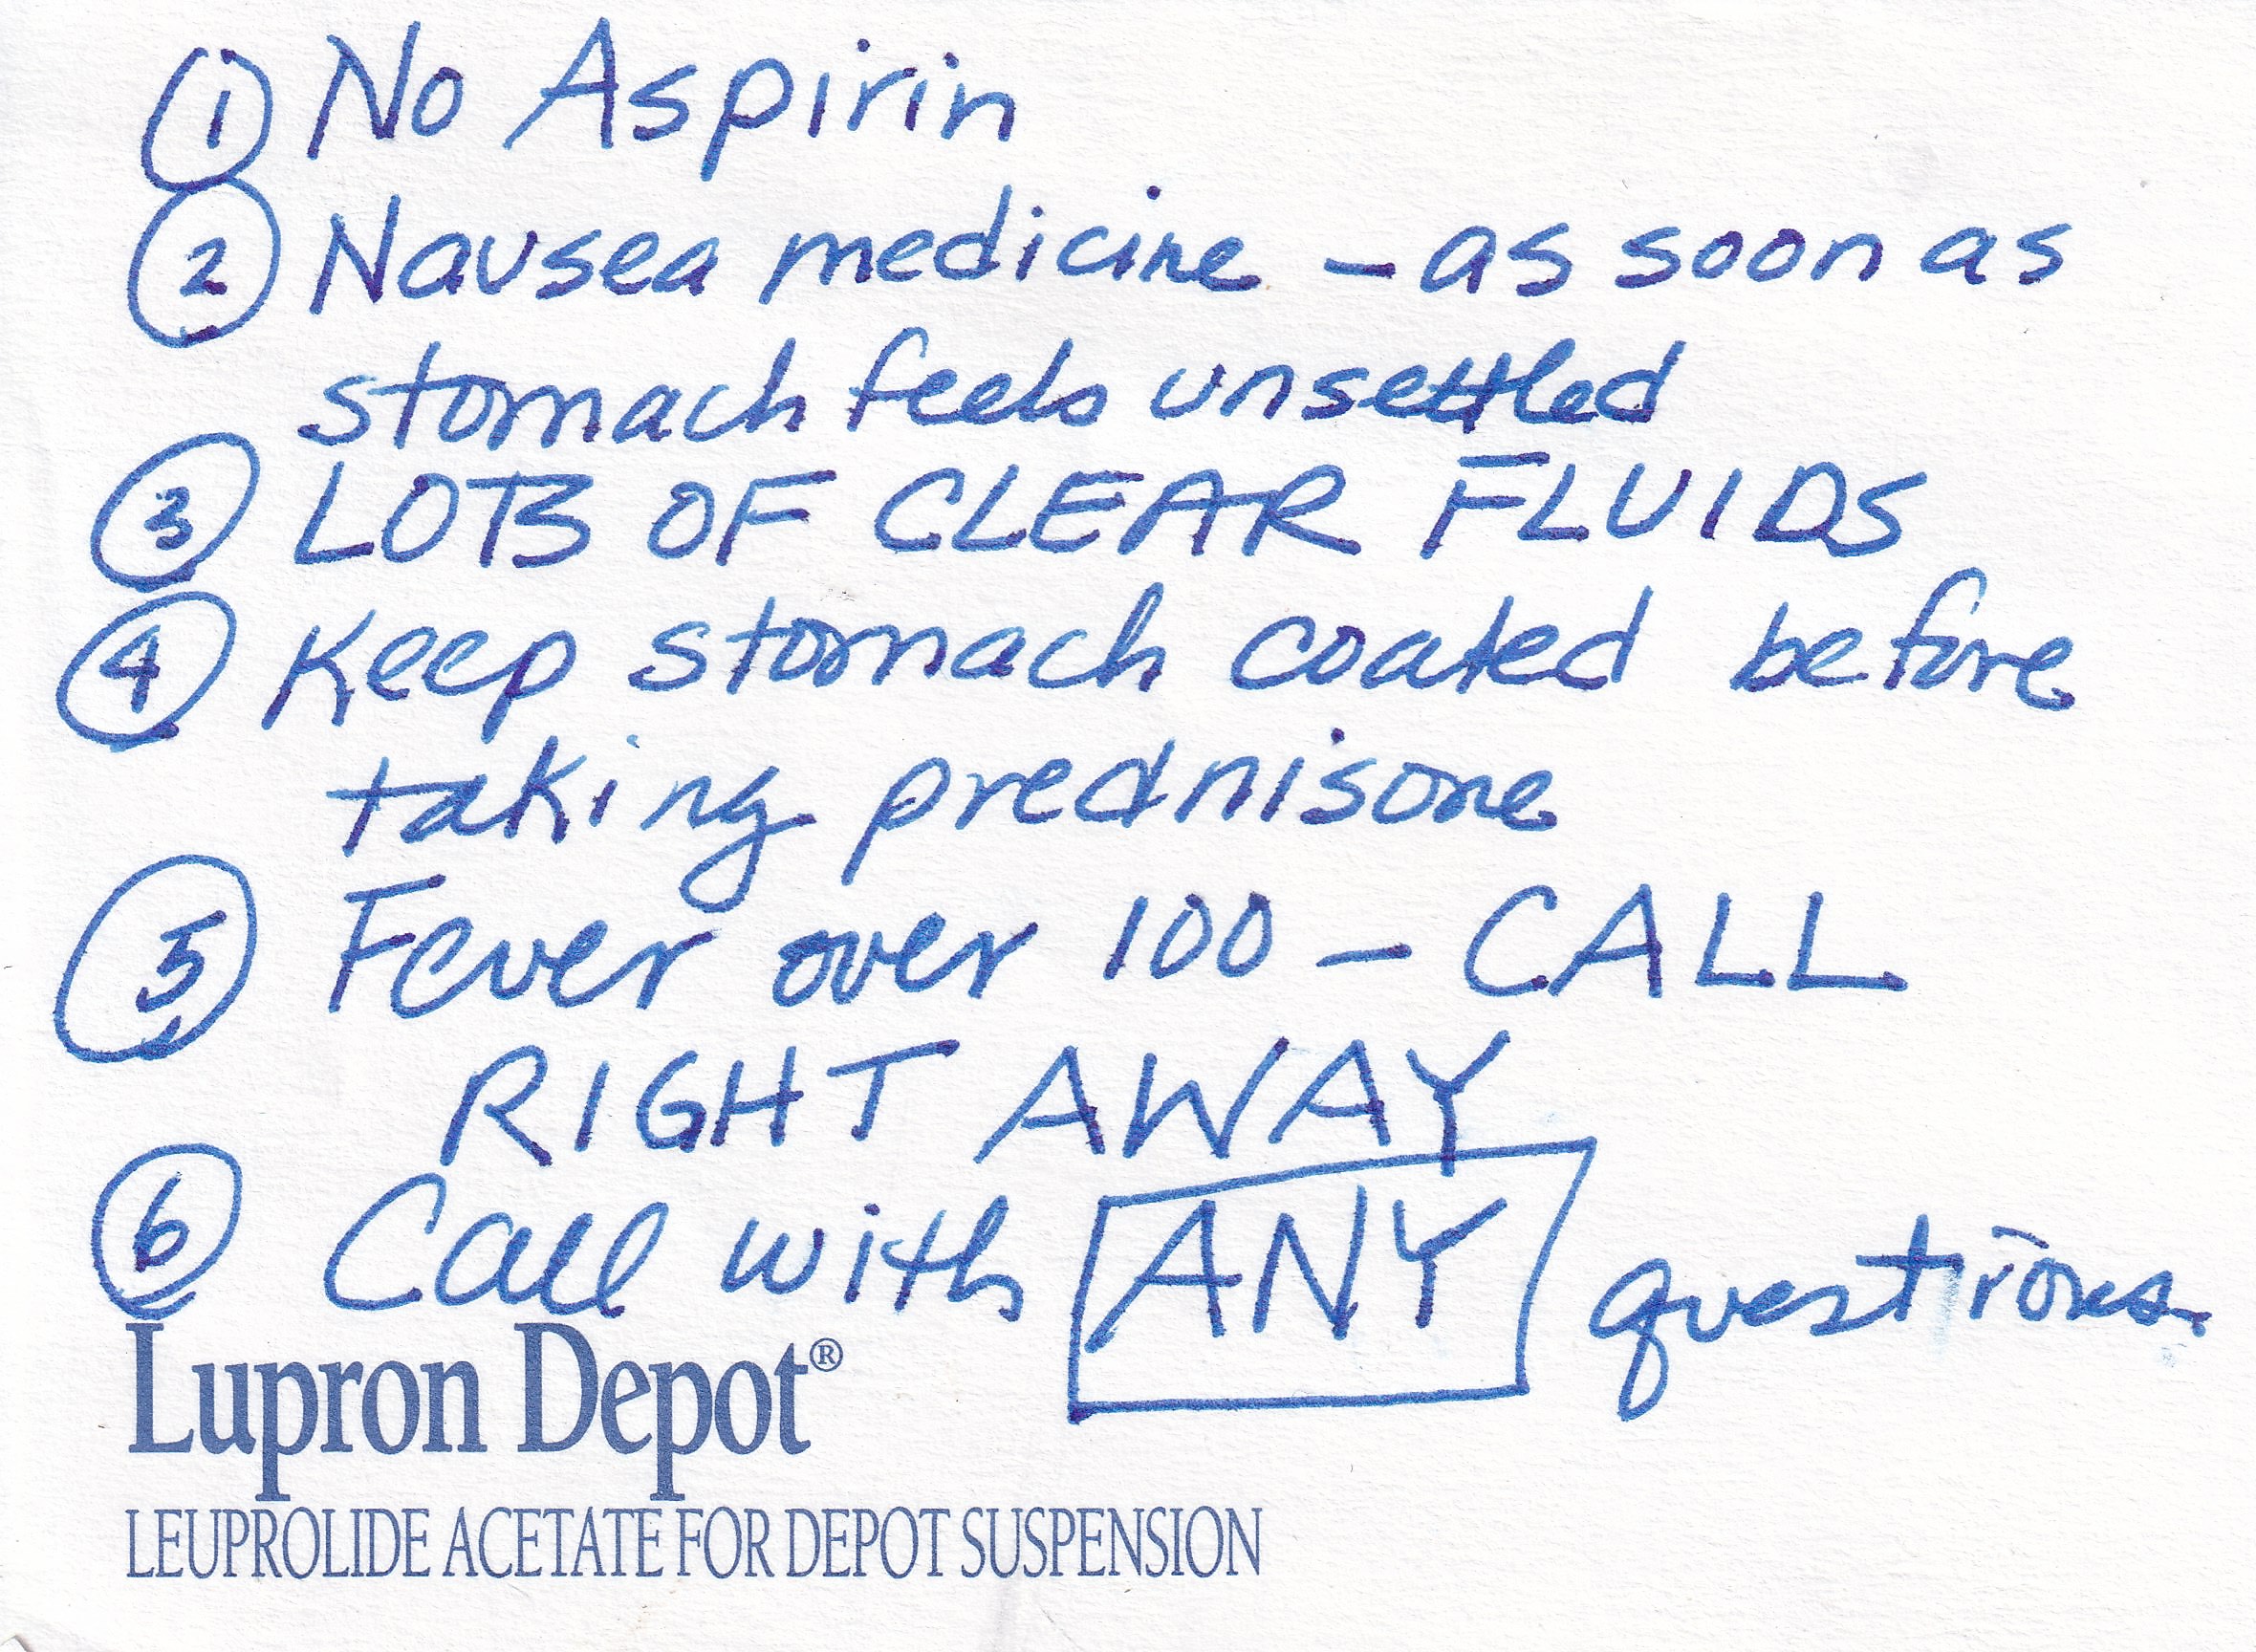 ① No Aspirin
② Nausea medicine - as soon as
stomach feels unsettled
③ LOTS OF CLEAR FLUIDS
④ Keep stomach coated before
taking prednisone
⑤ Fever over 100 - CALL
RIGHT AWAY
⑥ Call with ANY questions.
Lupron Depot®
LEUPROLIDE ACETATE FOR DEPOT SUSPENSION